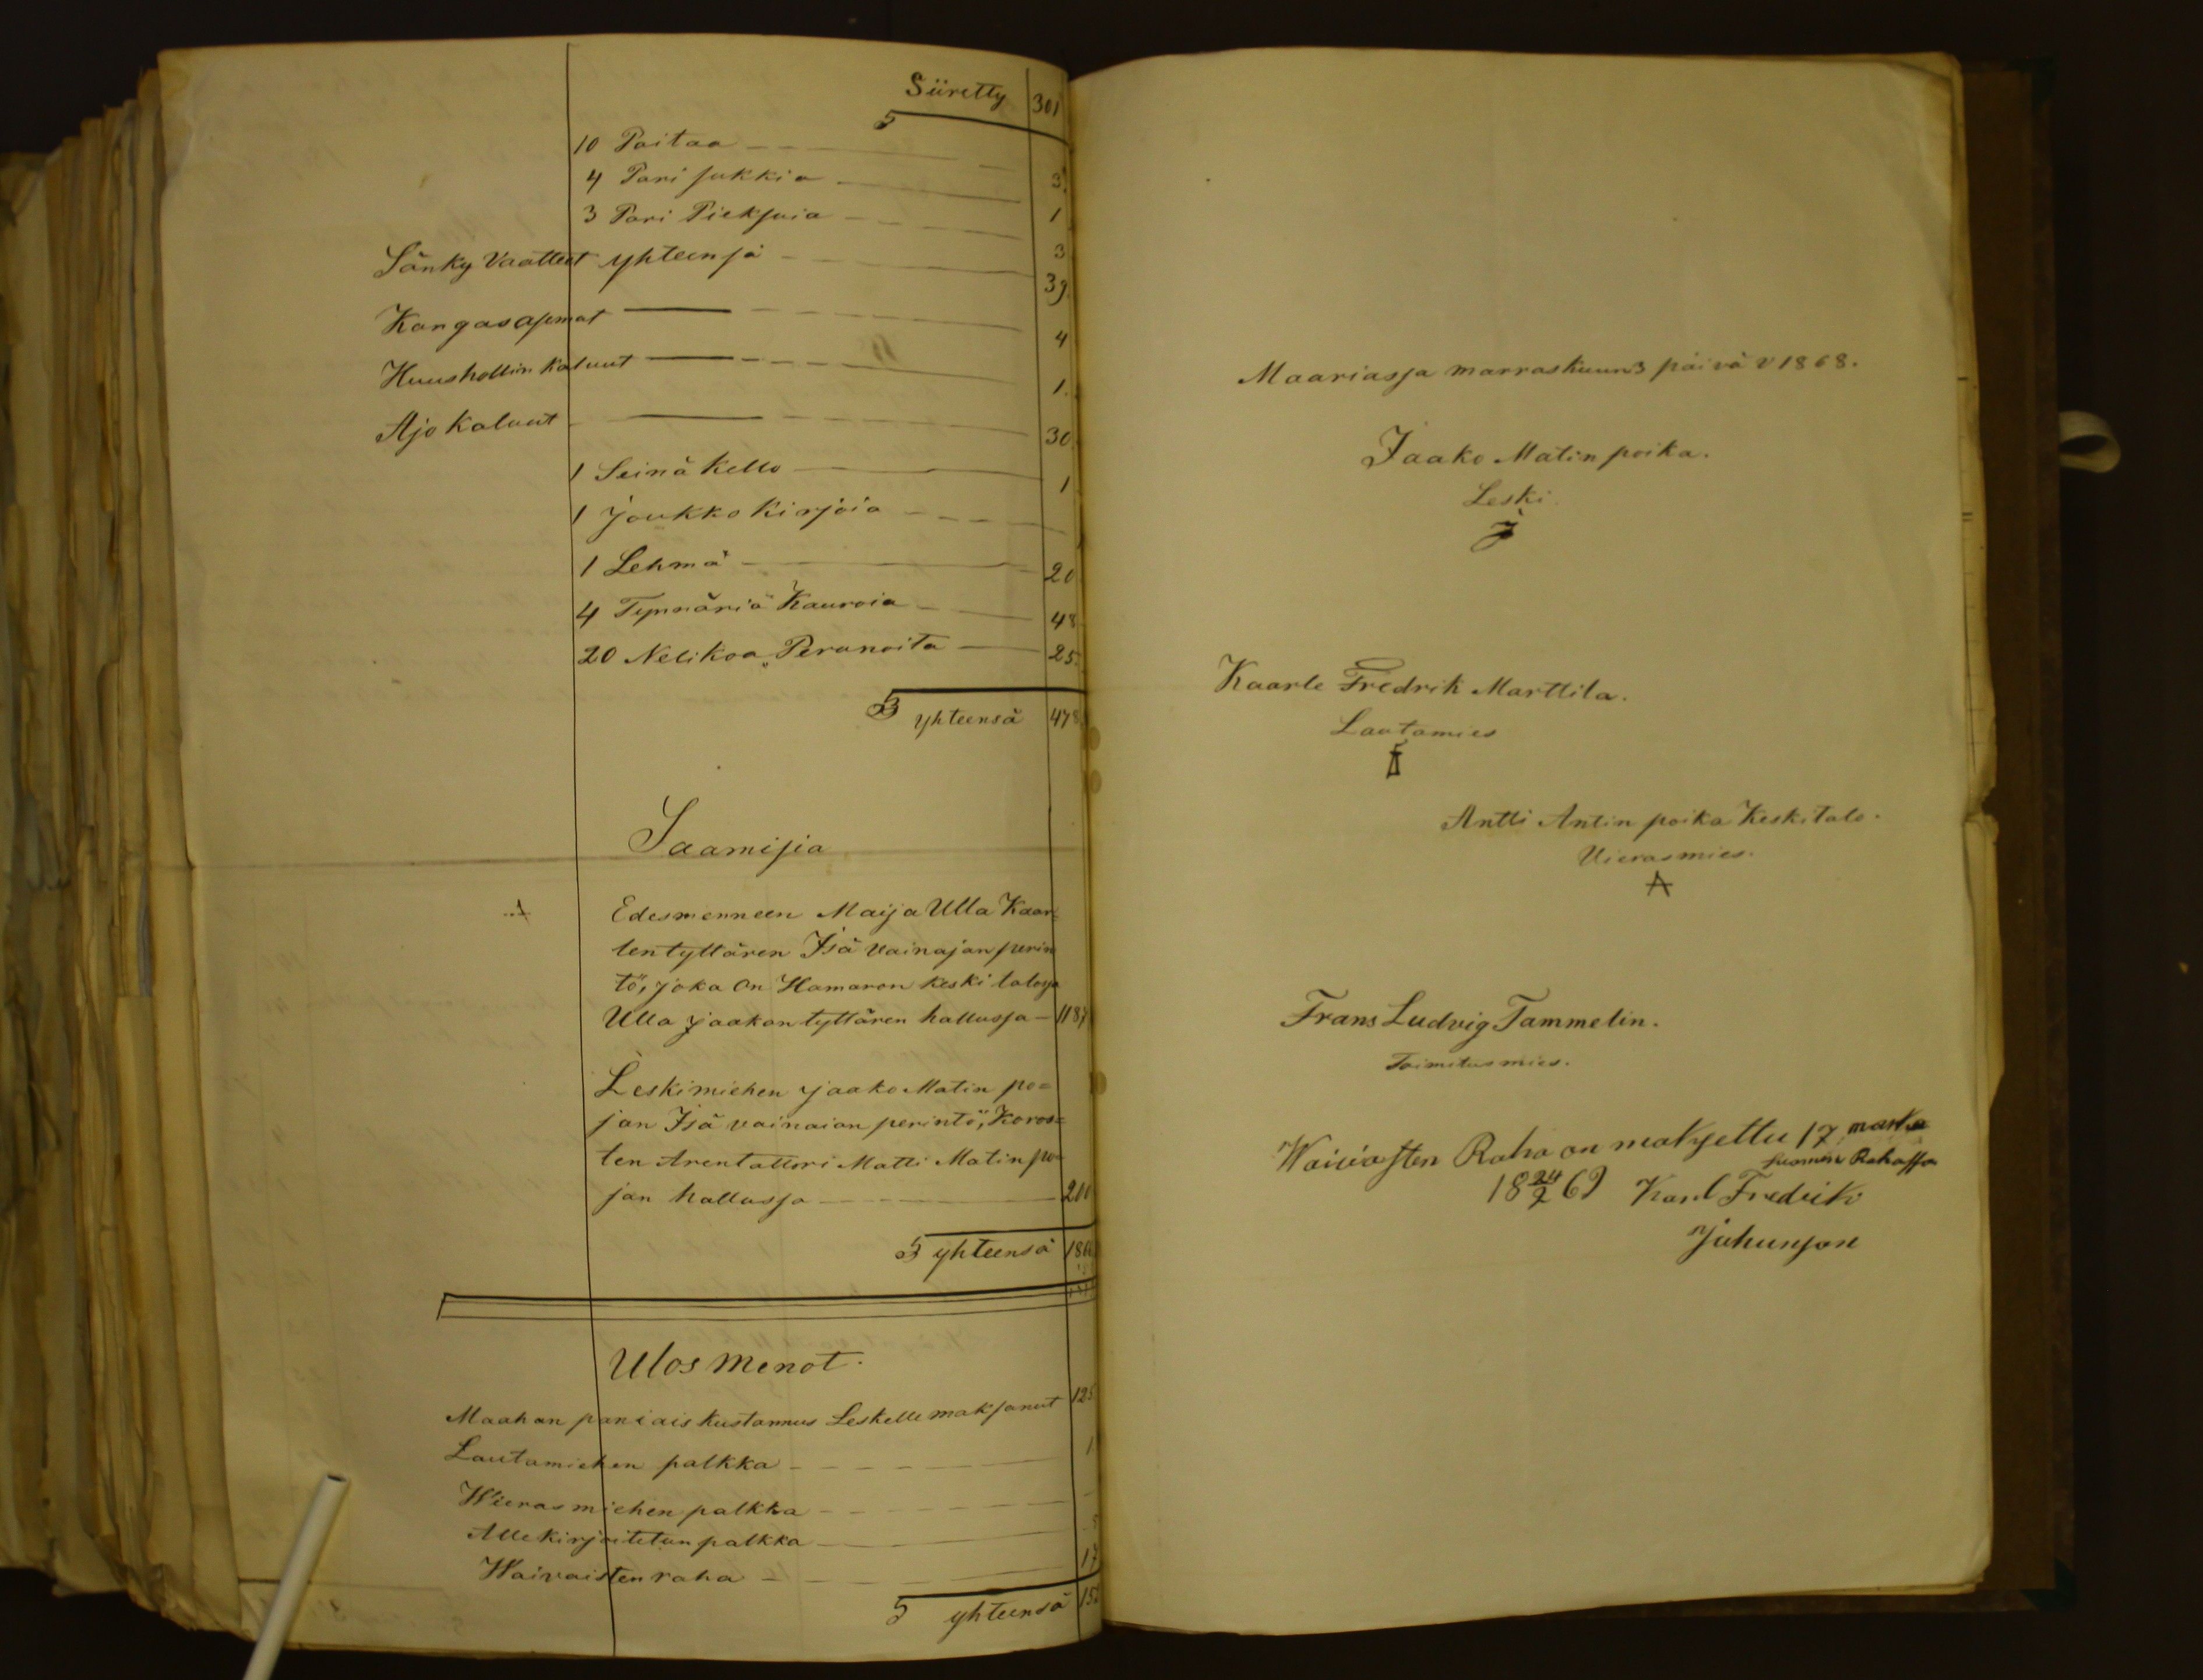 Siiretty 301
10 Paitaa
4 Pari sukkia 3
3 Pari Pieksuia 1
3
Sänky Vaatteet yhteensä 39
Kangasasemat 4
Huushollin Kaluut 1
Ajo Kaluut 30
1 Seinä Kello 1
1 Joukko Kirjoia
1 Lehmä 20
4 Tynnäriä Kauroia 48
20 Nelikoa Perunoita 25
yhteensä 478
Saamisia
Edesmenneen Maija Ulla Kaar=
len tyttären Isä vainajan perin
tö, joka on Hamaron keski talosa
Ulla Jaakon tyttären hallussa 1187
Leskimiehen Jaako Matin po=
jan Isä vainaian perintö, Koros=
ten Arentattori Matti Matin po=
jan hallussa 200
yhteensä
Ulos Menot.
Maahan paniais kustannus Leskelle maksanut 125
Lautamiehen palkka 1
Wieras miehen palkka
Allekirjoitetun palkka
Waivaisten raha 17
yhteensä 152
Maariassa marraskuun 3 päivä v 1868.
Jaako Matin poika.
Leski.
J
Kaarle Fredrik Marttila.
Lautamies
Antti Antin poika Keskitalo.
Vierasmies.
A
Frans Ludvig Tammelin.
Toimitusmies.
Waivasten Raha on maksettu 17 marka
suomen Rahassa
18 24/2 69 Karl Fredrik
Juhunson